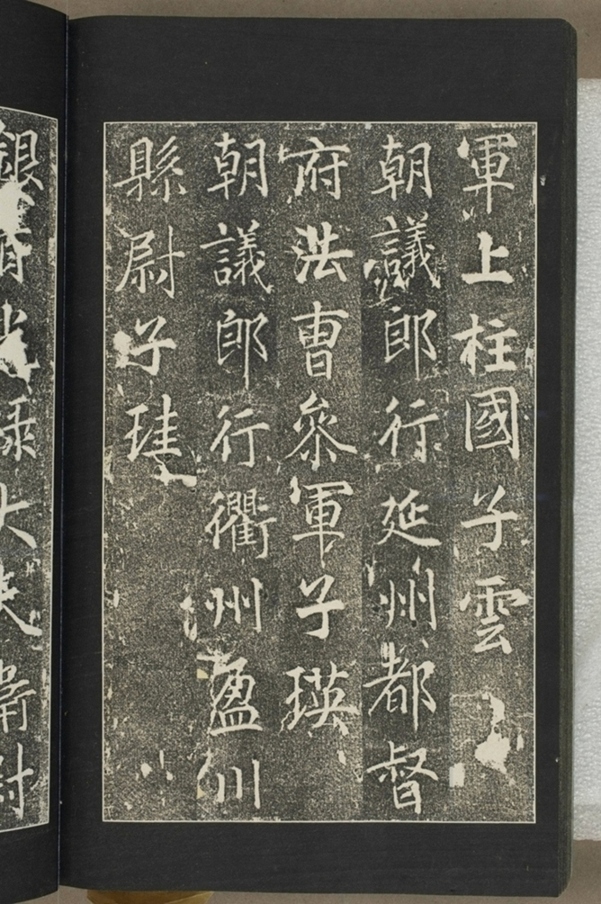 軍上柱國子雲
朝議郎行延州都督
府法曹參軍子瑛
朝議郎行衢州盈川
縣尉子珪
銀青光祿大夫